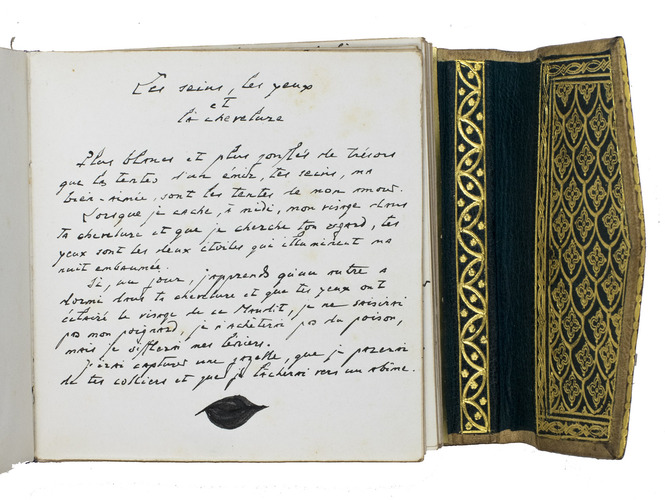 Tes seins, tes yeux
et
ta chevelure
Plus blancs et plus gonflés de trésors
que les tentes d'un émir, tes seins, ma
bien-aimée, sont les tentes de mon amour.
Lorsque je cache, à midi, mon visage dans
ta chevelure et que je cherche ton regard, tes
yeux sont les deux étoiles qui illuminent ma
nuit embaumée.
Si, un jour, j'apprends qu'un autre a
dormi dans ta chevelure et que tes yeux ont
éclairé le visage de ce Maudit, je ne saisirai
pas mon poignard, je n'achèterai pas du poison,
mais je sifflerai mes lévriers.
J'irai capturer une gazelle, que je parerai
de tes colliers et que je lâcherai vers un abîme.